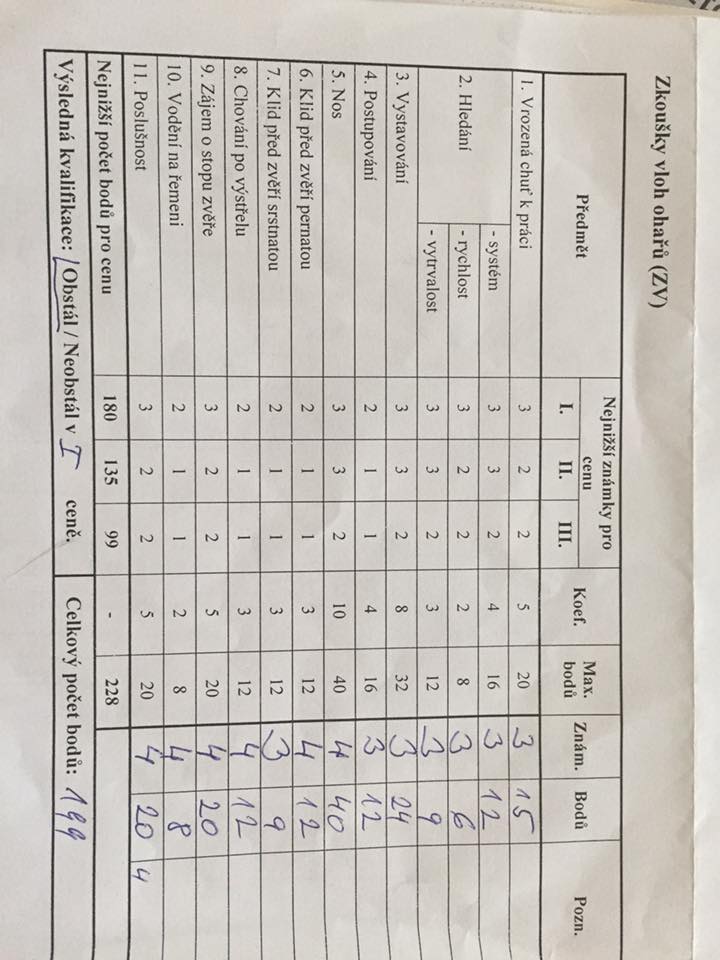 Zkoušky vloh ohařů (ZV)
Předmět Nejnižší známky pro cenu Koef. Max. bodů Znám. Bodů Pozn.
I. II. III.
1. Vrozená chuť k práci 3 2 2 5 20 3 15
2. Hledání - systém 3 3 2 4 16 3 12
- rychlost 3 2 2 2 8 3 6
- vytrvalost 3 3 2 3 12 3 9
3. Vystavování 3 3 2 8 32 3 24
4. Postupování 2 1 1 4 16 3 12
5. Nos 3 3 2 10 40 4 40
6. Klid před zvěří pernatou 2 1 1 3 12 4 12
7. Klid před zvěří srstnatou 2 1 1 3 12 3 9
8. Chování po výstřelu 2 1 1 3 12 4 12
9. Zájem o stopu zvěře 3 2 2 5 20 4 20
10. Vodění na řemeni 2 1 1 2 8 4 8
11. Poslušnost 3 2 2 5 20 4 20 4
Nejnižší počet bodů pro cenu 180 135 99 - 228
Výsledná kvalifikace: Obstál / Neobstál v I ceně. Celkový počet bodů: 199